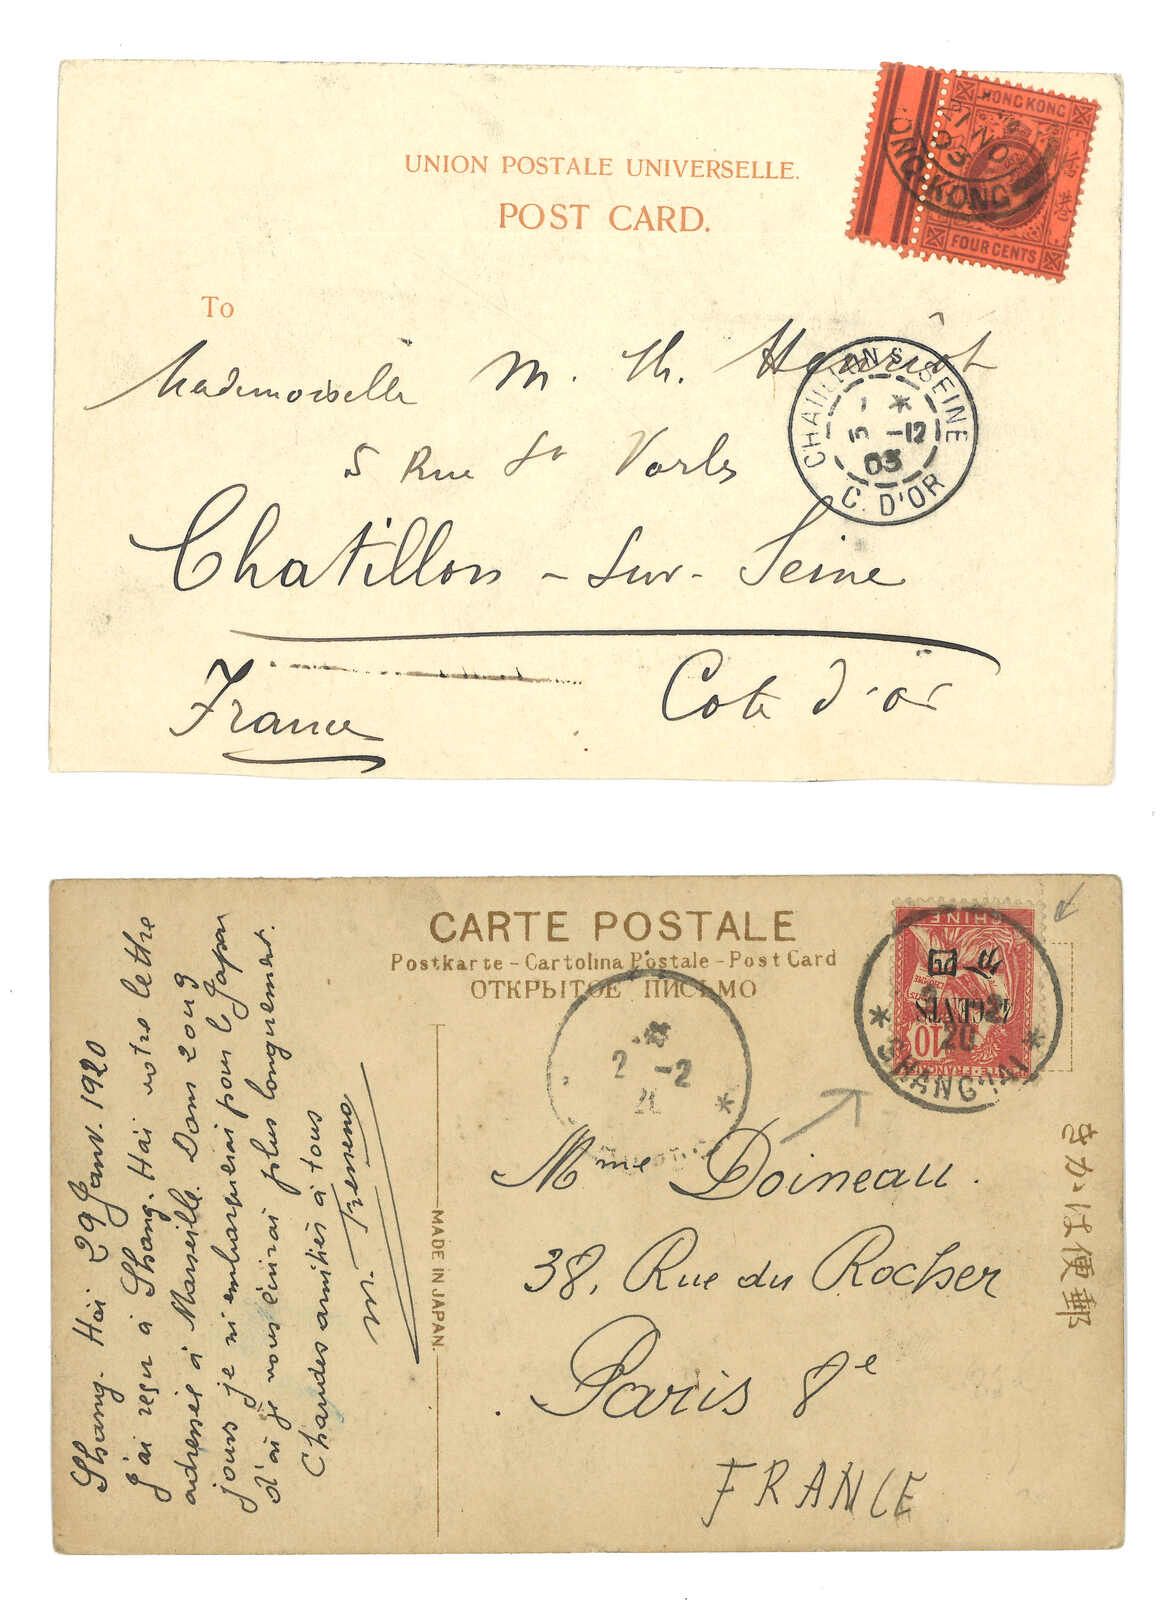 UNION POSTALE UNIVERSELLE.
POST CARD.
HONG KONG
FOUR CENTS
NO
03
ONG KONG
To
Mademoiselle M. Th. Henriot
5 Rue St Vorles
Chatillon-sur-Seine
France
Cote d'or
CHATILLON S. SEINE
5 -12
03
C. D'OR
CARTE POSTALE
Postkarte - Cartolina Postale - Post Card
ОТКРЫТОЕ ПИСЬМО
CHINE
4 CENTS
10
SHANG-HAI
20
2 -2
Shang-Haï 29 Janv. 1920
J'ai reçu à Shang-Haï votre lettre
adressée à Marseille. Dans 2 ou 3
jours je m'embarquerai pour le Japon
d'où je vous écrirai plus longuement.
Chaudes amitiés à tous
MADE IN JAPAN.
Mme Doineau.
38, Rue du Rocher
Paris 8e
FRANCE
きかは便郵